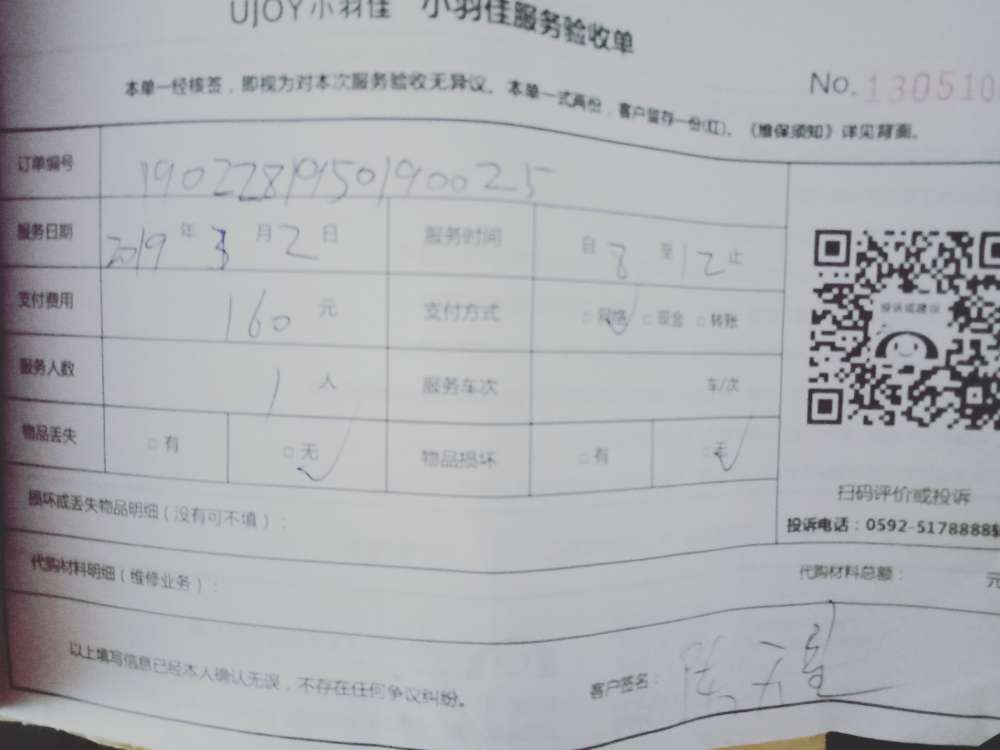 UJOY小羽佳 小羽佳服务验收单
本单一经核签，即视为对本次服务验收无异议。本单一式两份，客户留存一份(红)。《维保须知》详见背面。
No.130510
订单编号 1902281950190025
服务日期 2019年3月2日 服务时间 自8至12止
支付费用 160元 支付方式 □网络 □现金 □转账
服务人数 1人 服务车次 车/次
物品丢失 □有 □无 物品损坏 □有 □无
投诉或建议
扫码评价或投诉
投诉电话：0592-5178888转
损坏或丢失物品明细（没有可不填）：
代购材料明细（维修业务）： 代购材料总额： 元
以上填写信息已经本人确认无误，不存在任何争议纠纷。 客户签名：